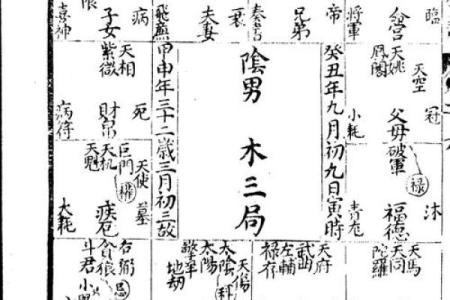 臨
命宮
將軍
帝
兄弟
衰
夫妻
奏書
飛廉
子女
病
喜神
天空
天姚
鳳閣
冠
父母
破軍
小耗
祿
沐
福德
青龍
天馬
天同
陀羅
癸丑年九月初九日寅時
陰男
木三局
甲申年三十二歲三月初三故
天相
紫微
死
財帛
病符
巨門
天機
天魁
權
天使
墓
疾厄
大耗
右弼
貪狼
忌
斗君
天府
武曲
左輔
祿存
天傷
太陰
科
太陽
擎羊
地劫